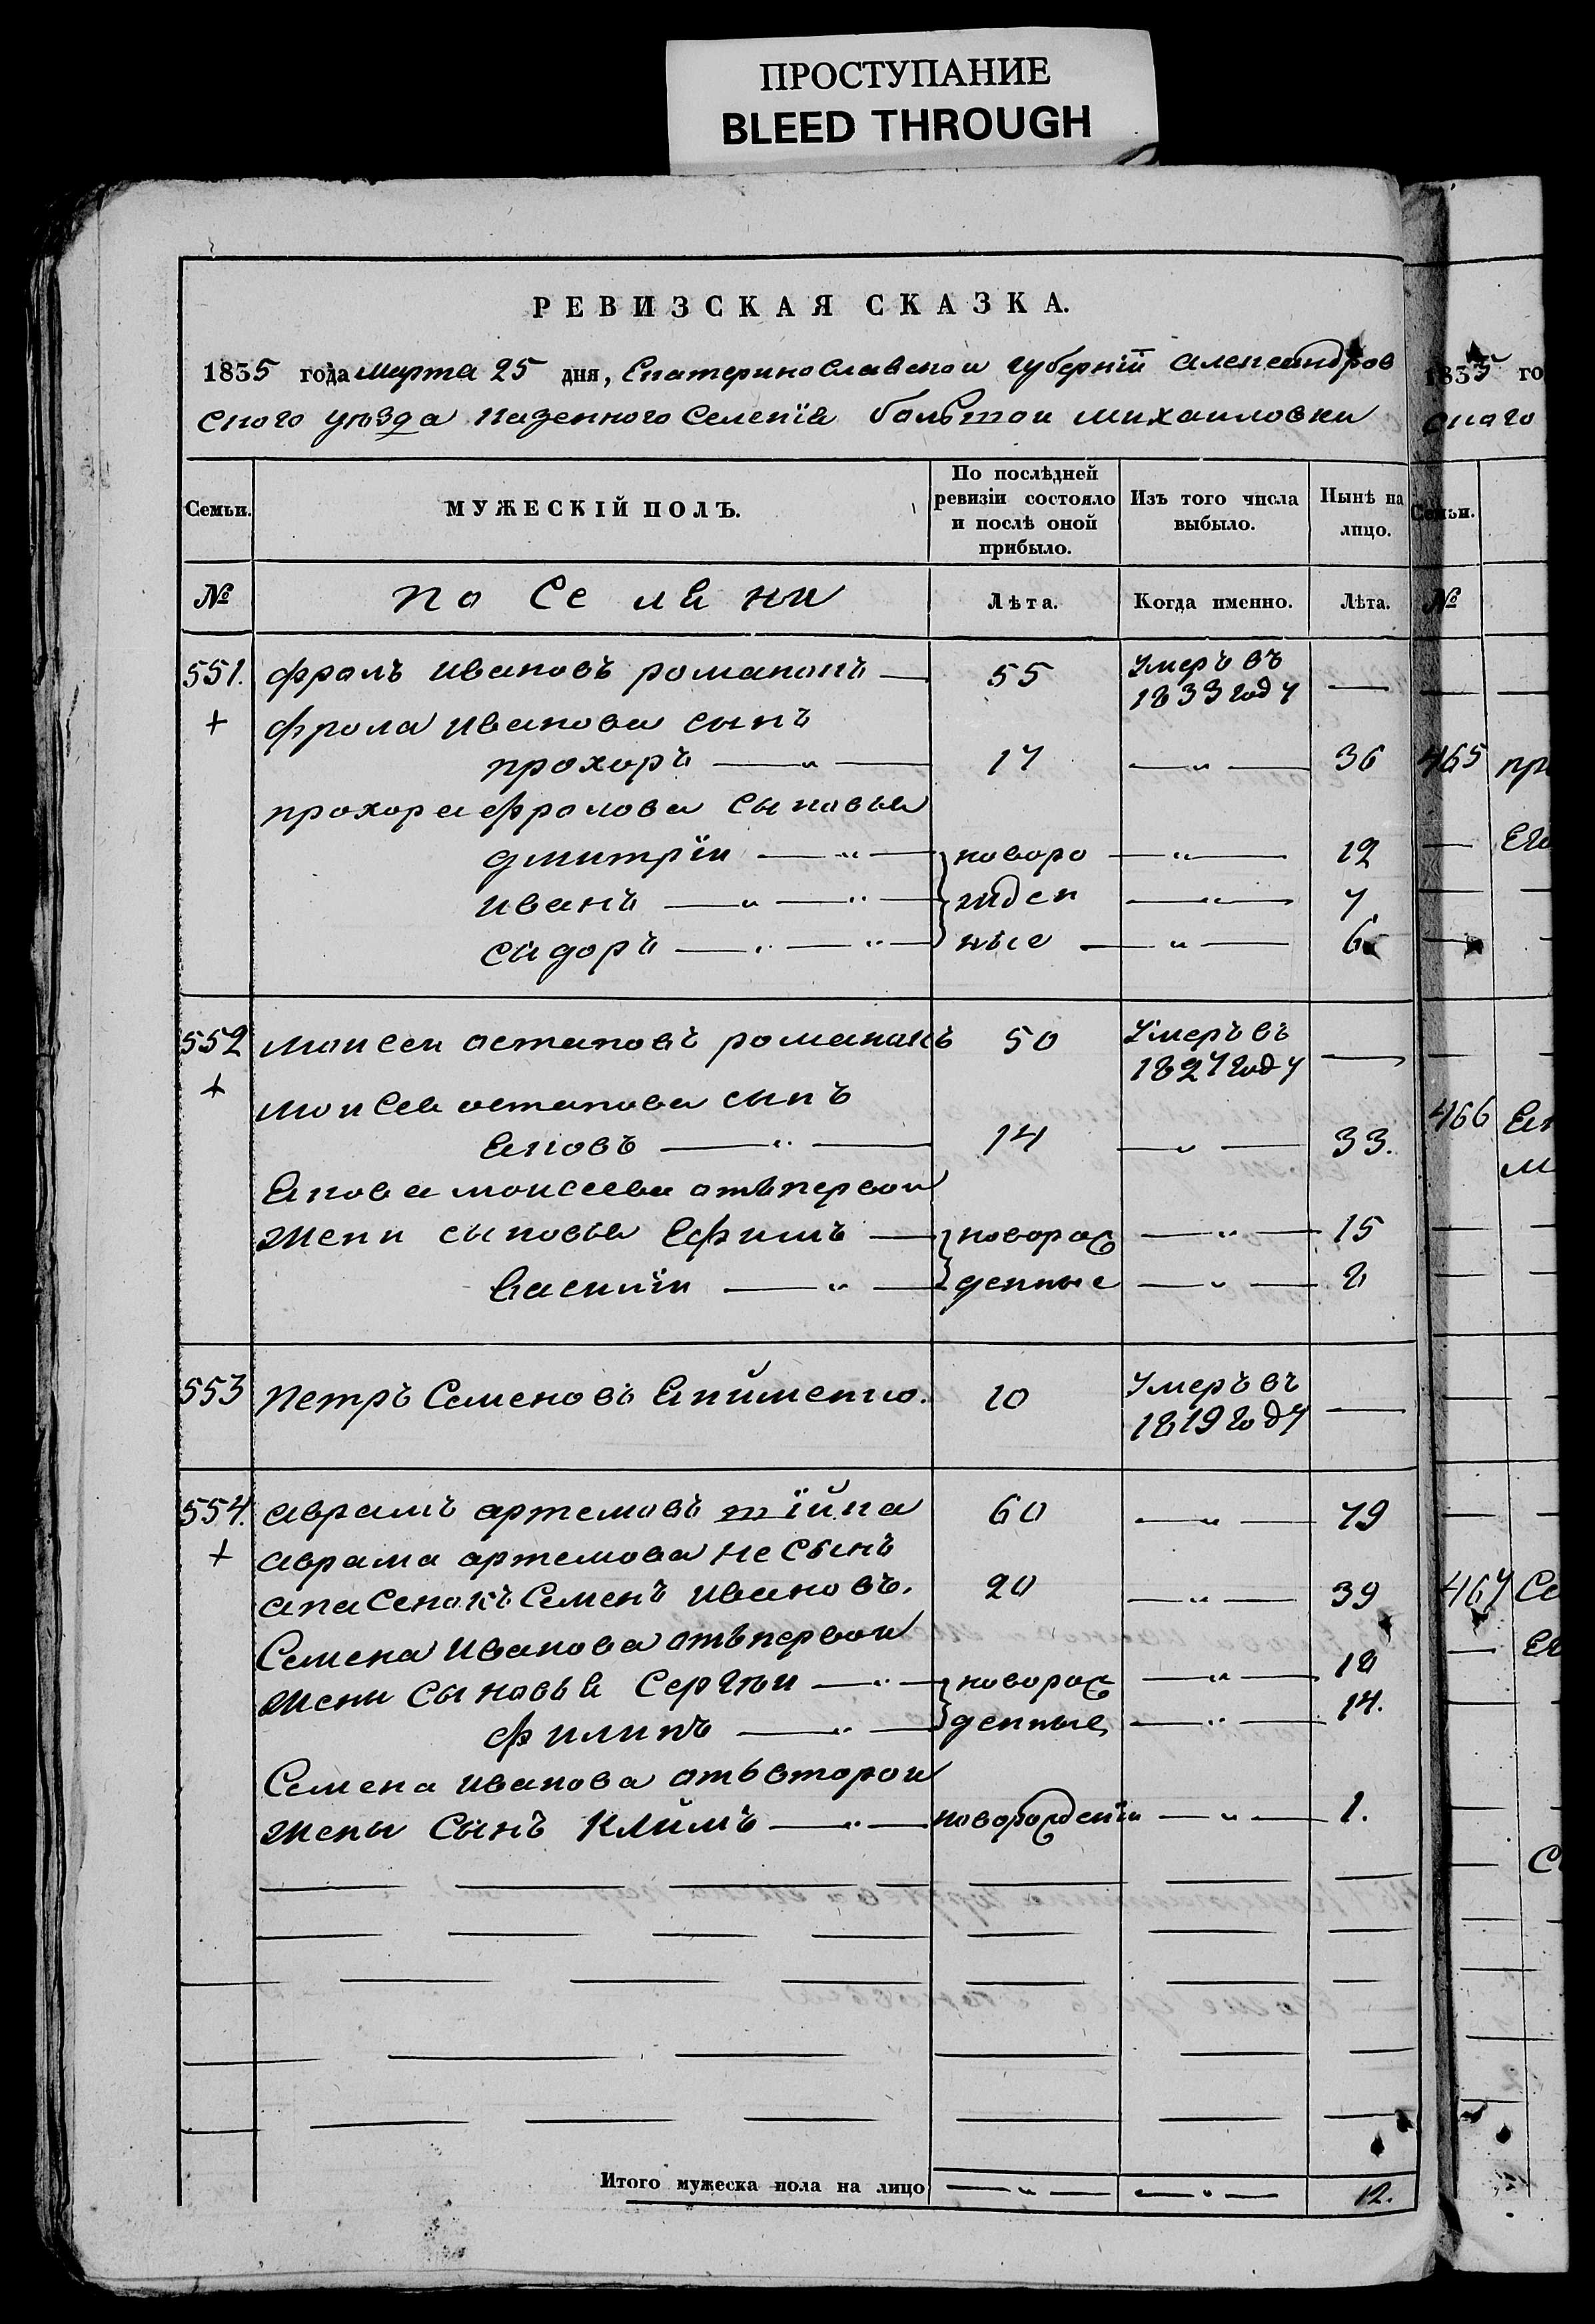 ПРОСТУПАНИЕ
BLEED THROUGH
РЕВИЗСКАЯ СКАЗКА.
1835 года марта 25 дня, Екатеринославской губерніи Александров
ского уѣзда казенного селенія большои михаиловки
Семьи.
МУЖЕСКІЙ ПОЛЪ.
По послѣдней ревизіи состояло и послѣ оной прибыло.
Изъ того числа выбыло.
Нынѣ на лицо.
№
поселяни
Лѣта.
Когда именно.
Лѣта.
551. фролъ ивановъ романокъ — 55 Умеръ въ 1833 году —
+ фрола иванова сынъ
прохоръ — „ — 17 — „ — 36
прохора фролова сыновья
дмитріи — „ — новоро — „ — 12
иванъ — „ — „ — жден — „ — 7.
сыдоръ — „ — „ — ные — „ — 6
552 моисеи остаповъ романокъ 50 Умеръ въ 1827 году —
+ моисея остапова сынъ
яковъ — „ — 14 — „ — 33.
якова моисеева отъ первои
жени сыновья ефимъ — новорож — „ — 15
василіи — „ — денные — „ — 8
553 петръ семеновъ якименко. 10 Умеръ въ 1819 году —
554. аврамъ артемовъ шійка 60 — „ — 79
+ аврама артемова не сынъ
а пасенокъ семенъ ивановъ. 20 — „ — 39
семена иванова отъ первои
жени сыновья сергѣи — „ — новорож — „ — 18
филипъ — „ — денные — „ — 14.
семена иванова отъ второи
жены сынъ климъ — „ — новорожденіи — „ — 1.
Итого мужеска пола на лицо — „ — — „ — 12.
1835 го
скаго
Семьи.
№
465 пр
Его
466
467 Се